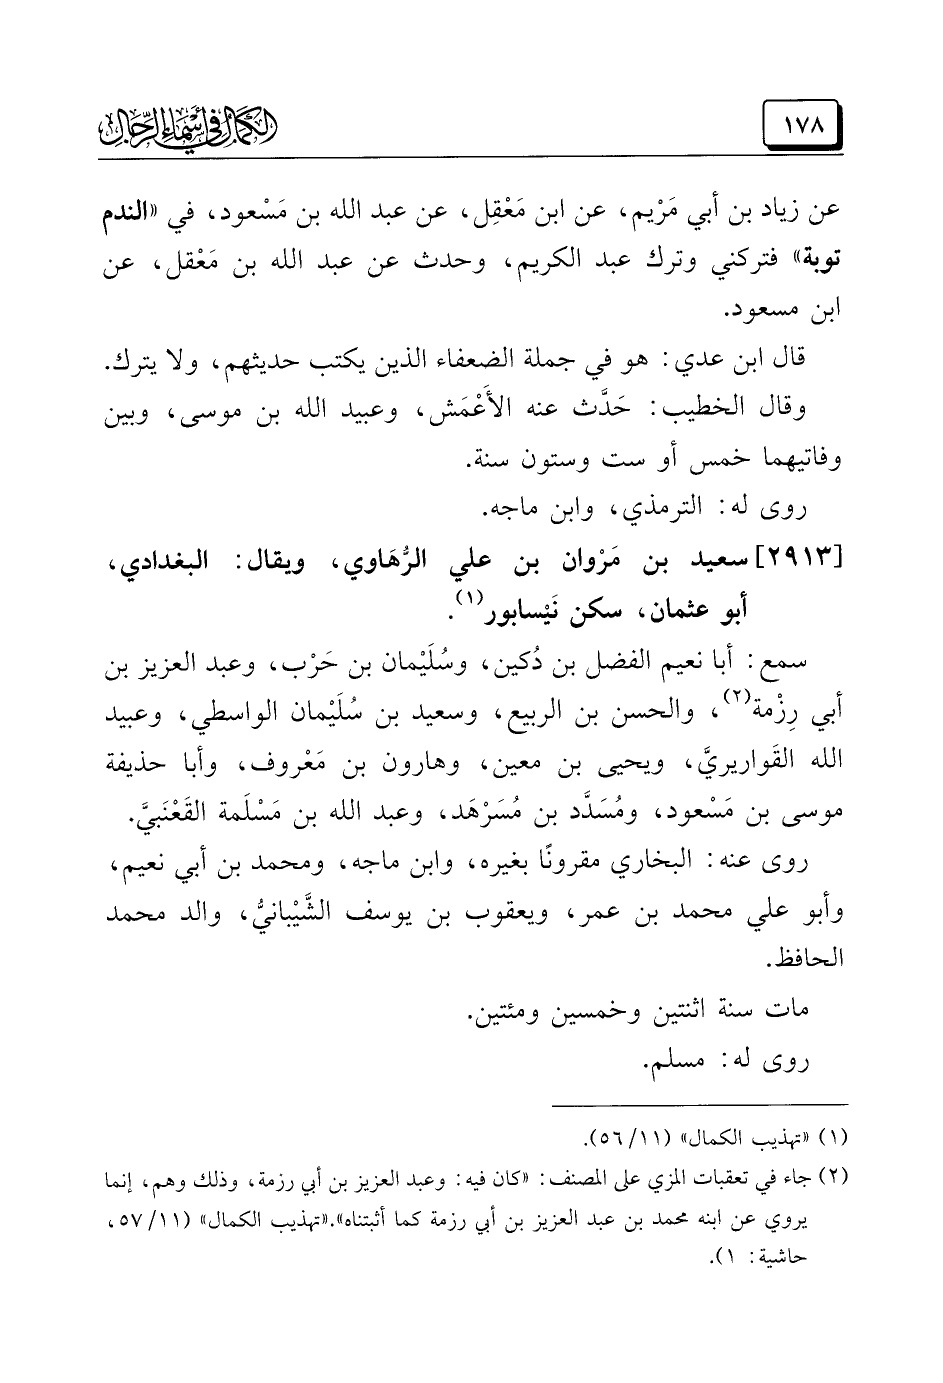 ١٧٨
الكمال في أسماء الرجال
عن زياد بن أبي مَرْيم، عن ابن مَعْقِل، عن عبد الله بن مَسْعود، في «الندم
توبة» فتركني وترك عبد الكريم، وحدث عن عبد الله بن مَعْقل، عن
ابن مسعود.
قال ابن عدي: هو في جملة الضعفاء الذين يكتب حديثهم، ولا يترك.
وقال الخطيب: حَدَّث عنه الأَعْمَش، وعبيد الله بن موسى، وبين
وفاتيهما خمس أو ست وستون سنة.
روى له: الترمذي، وابن ماجه.
[٢٩١٣] سعيد بن مَرْوان بن علي الرُّهَاوي، ويقال: البغدادي،
أبو عثمان، سكن نَيْسابور(١).
سمع: أبا نعيم الفضل بن دُكين، وسُلَيْمان بن حَرْب، وعبد العزيز بن
أبي رِزْمة(٢)، والحسن بن الربيع، وسعيد بن سُلَيْمان الواسطي، وعبيد
الله القَواريريَّ، ويحيى بن معين، وهارون بن مَعْروف، وأبا حذيفة
موسى بن مَسْعود، ومُسَدَّد بن مُسَرْهَد، وعبد الله بن مَسْلَمة القَعْنَبيَّ.
روى عنه: البخاري مقرونًا بغيره، وابن ماجه، ومحمد بن أبي نعيم،
وأبو علي محمد بن عمر، ويعقوب بن يوسف الشَّيْبانيُّ، والد محمد
الحافظ.
مات سنة اثنتين وخمسين ومئتين.
روى له: مسلم.
(١) «تهذيب الكمال» (١١/ ٥٦).
(٢) جاء في تعقبات المزي على المصنف: «كان فيه: وعبد العزيز بن أبي رزمة، وذلك وهم، إنما
يروي عن ابنه محمد بن عبد العزيز بن أبي رزمة كما أثبتناه».«تهذيب الكمال» (١١/ ٥٧،
حاشية: ١).